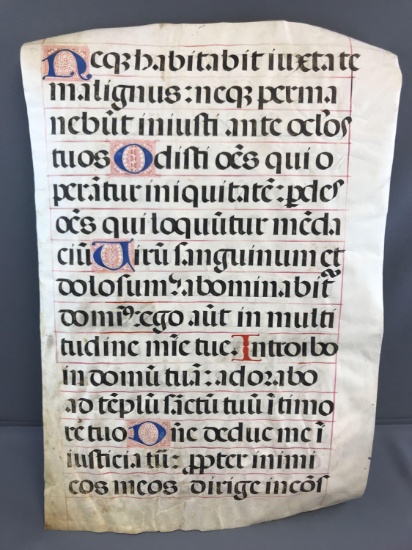 Neqʒ habitabit iuxta te
malignus: neqʒ perma
nebūt iniusti ante ocl̄os
tuos Odisti oēs qui o
perātur iniquitatē: p̲des
oēs qui loquūtur mēda
ciū Uirū sanguinum et
dolosum: abominabit̄
domiꝰ: ego aūt in multi
tudine mīe tue. Introibo
in domū tuā: adorabo
ad tēplū sāctū tuū ī timo
re tuo Dn̄e deduc me ī
iusticia tū: ꝓpter inimi
cos meos dirige incōs